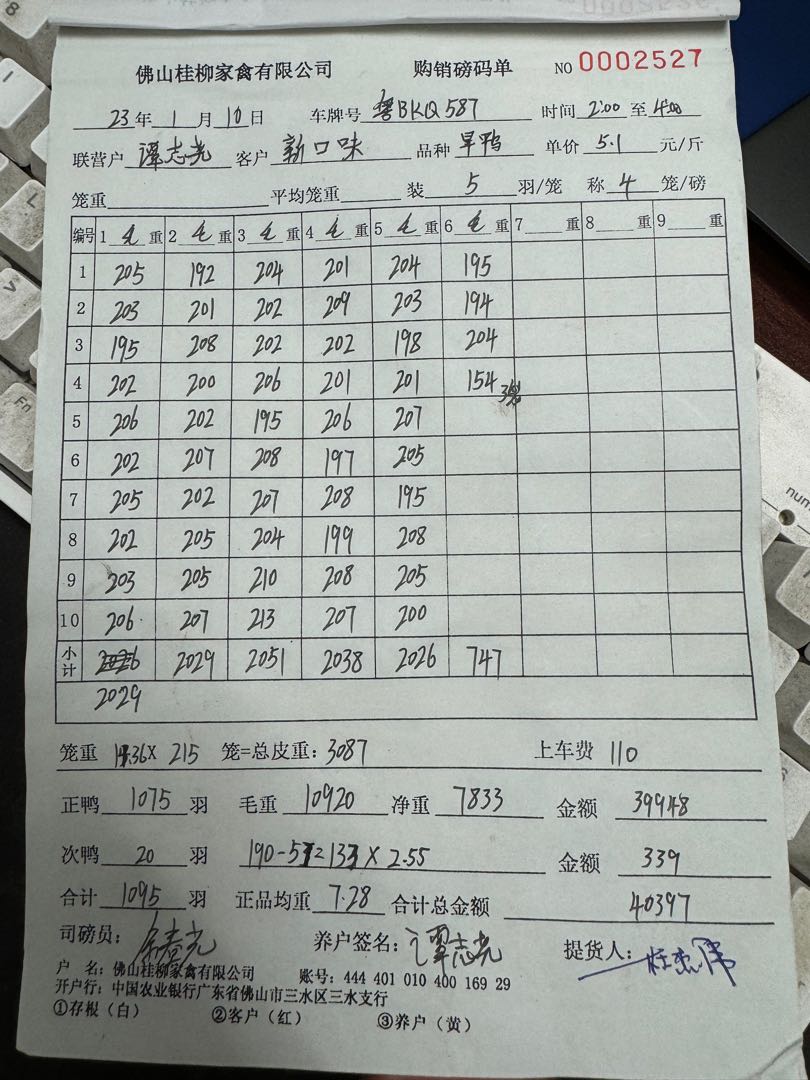 佛山桂柳家禽有限公司 购销磅码单 NO 0002527
23年 1月 10日 车牌号 粤BKQ587 时间 2:00 至 4:00
联营户 谭志光 客户 新口味 品种 旱鸭 单价 5.1 元/斤
笼重 平均笼重 装 5 羽/笼 称 4 笼/磅
编号 1 毛 重 2 毛 重 3 毛 重 4 毛 重 5 毛 重 6 毛 重 7 重 8 重 9 重
1 205 192 204 201 204 195
2 203 201 202 209 203 194
3 195 208 202 202 198 204
4 202 200 206 201 201 154
5 206 202 195 206 207
6 202 207 208 197 205
7 205 202 207 208 195
8 202 205 204 199 208
9 203 205 210 208 205
10 206 207 213 207 200
小计 2026 2029 2051 2038 2026 747
2029
笼重 14.36 X 215 笼=总皮重: 3087 上车费 110
正鸭 1075 羽 毛重 10920 净重 7833 金额 39948
次鸭 20 羽 190-57=133 X 2.55 金额 339
合计 1095 羽 正品均重 7.28 合计总金额 40397
司磅员: 养户签名: 谭志光 提货人:
户 名: 佛山桂柳家禽有限公司 账号: 444 401 010 400 169 29
开户行: 中国农业银行广东省佛山市三水区三水支行
①存根(白) ②客户(红) ③养户(黄)